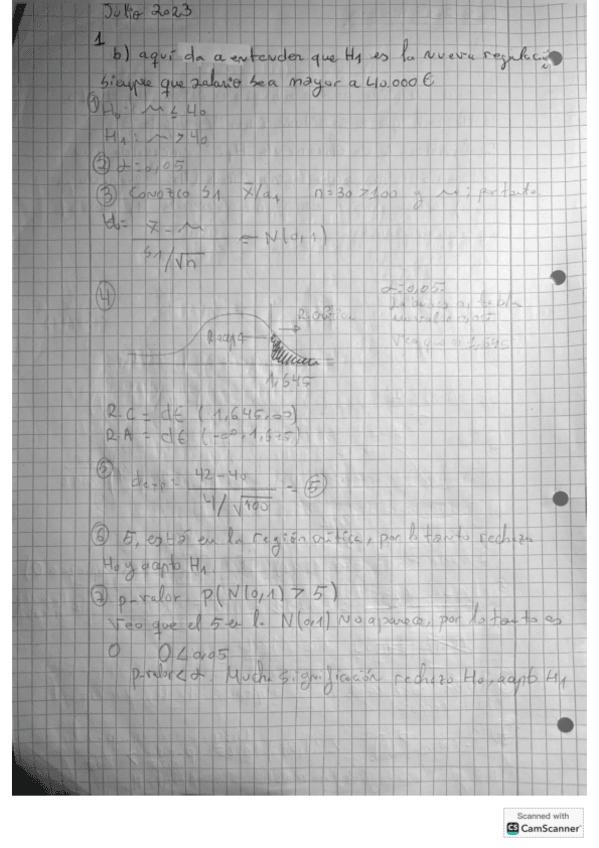 Julio 2023
1
b) aquí da a entender que H1 es la nueva regulación
siempre que salario sea mayor a 40.000 €
① H0: μ ≤ 40
H1: μ > 40
② α = 0,05
③ Conozco S1 x̄/a1 n=30 > 100 y μ; por tanto
d = x̄ - μ / S1/√n = N(0,1)
④
α = 0,05
R. crítica
R. acept
1,645
R.C = d∈ (1,645, ∞)
R.A = d∈ (-∞, 1,645)
⑤ = 42-40 / 4/√100 = ⑤
⑥ 5, está en la región crítica, por lo tanto rechazo
H0 y acepto H1.
⑦ p-valor P(N(0,1) > 5)
Veo que el 5 en la N(0,1) No aparece, por lo tanto es
0 0 < 0,05
p-valor < α. Mucha significación rechazo H0, acepto H1
Scanned with
CS CamScanner